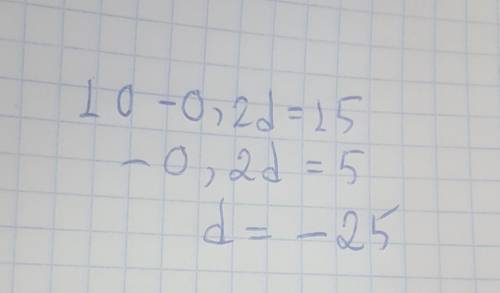 10 - 0,2d = 15
- 0,2d = 5
d = - 25